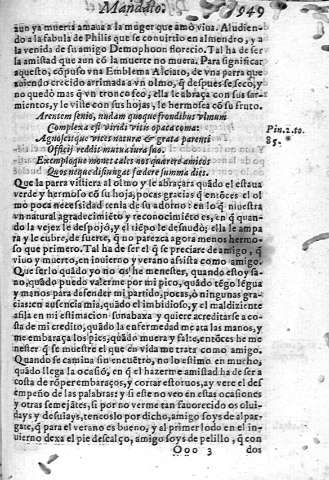 Mandato. 949
aun ya muerta amaua a la muger que amò viua. Aludien-
do a la fabula de Philis que se conuirtio en almendro, y a
la venida de su amigo Demophoon florecio. Tal ha de ser
la amistad que aun cõ la muerte no muera. Para significar
aquesto, cõpuso vna Emblema Alciato, de vna parra que
auiendo crecido arrimada a vn olmo, q̃ despues se seco, y
no quedò mas q̃ vn tronco feo, ella le abraça con sus sar-
mientos, y le viste con sus hojas, le hermosea cõ su fruto.
Arentem senio, nudam quoque frondibus vlmum
Complexa est viridi vitis opaca coma:
Agnoscitque vices naturæ & grata parenti
Officij reddit mutua iura suo.
Exemploque monet tales nos quærere amicos
Quos neque disiungat fædere summa dies.
Pin. 2. to.
85. *
Que la parra vistiera al olmo y le abraçara quãdo el estaua
verde y hermoso cõ su hoja, pocas gracias q̃ entõces el ol
mo poca necessidad tenia de su adorno: en lo q̃ nuestra
vn natural agradecimiẽto y reconocimiẽto es, en q̃ quan-
do la vejez le despojò, y el tiẽpo le desnudò; ella le ampa
ra y le cubre, de suerte, q̃ no parezca agora menos hermo-
so que primero. Tal ha de ser el q̃ se preciare de amigo, q̃
viuo y muerto, en inuierno y verano assista como amigo.
Que serlo quãdo yo no os he menester, quando estoy sa-
no, quãdo puedo valerme por mi pico, quãdo tẽgo lẽgua
y manos para defender mi partido, pocas, ò ningunas gra-
cias: en ausencia mia, quãdo el imbidioso, y el maldiziente
afila en mi estimacion su nabaxa y quiere acreditarse a cos-
ta de mi credito, quãdo la enfermedad me ata las manos, y
me embaraça los pies, quãdo muera y falte, entõces he me
nester q̃ se muestre el que en vida me trata como amigo.
Quando se camina sin encuẽtro, no lo estimo en mucho,
quãdo llega la ocasiõ, en q̃ el hazerme amistad ha de ser a
costa de rõper embaraços, y cortar estoruos, ay vere el des
empeño de las palabras: y si este no veo en estas ocasiones
y otras semejãtes, si por no verme tan fauorecido os olui-
days y desuiays, tencoslo por dicho, amigo soys de alpar-
gate, q̃ para el verano es bueno, y al primer lodo en el in-
uierno dexa el pie descalço, amigo soys de pelillo, q̃ con
Ooo 3 dos